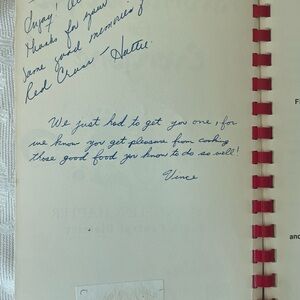 Enjoy!
thanks for your
some good memories of
Red Cross - Hattie
We just had to get you one, for
we know you get pleasure from cooking
those good food you know to do so well!
Vince
F
and